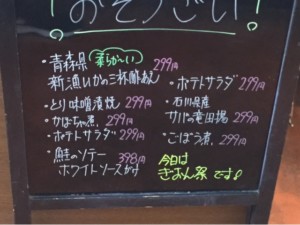 おそうざい!
・青森県 柔らか〜い 299円
新漁いかの三杯酢あえ
・とり味噌漬焼 299円
・かぼちゃ煮、299円
・ポテトサラダ 299円
・鮭のソテー 398円
ホワイトソースがけ
・ポテトサラダ 299円
・石川県産
サバの竜田揚 299円
・ごぼう煮、299円
今日は
ぎおん祭です♪